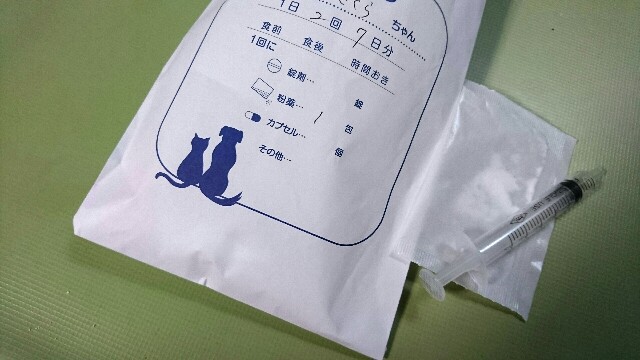 さくら ちゃん
1日 2 回 7 日分
食前 食後 時間おき
1回に
錠剤… 錠
粉薬… 1 包
カプセル… 個
その他…